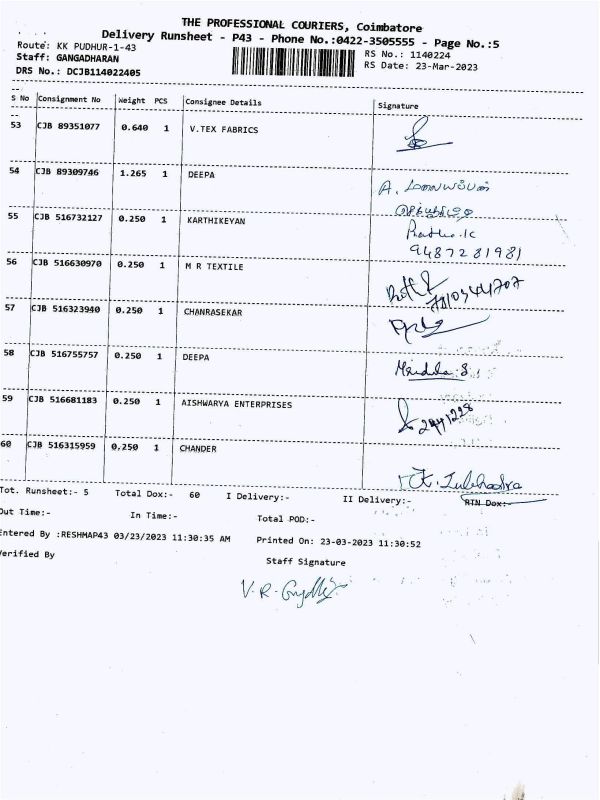 THE PROFESSIONAL COURIERS, Coimbatore
Delivery Runsheet - P43 - Phone No.:0422-3505555 - Page No.:5
Route: KK PUDHUR-1-43
RS No.: 1140224
Staff: GANGADHARAN
RS Date: 23-Mar-2023
DRS No.: DCJB114022405
S No Consignment No Weight PCS Consignee Details Signature
53 CJB 89351077 0.640 1 V.TEX FABRICS
54 CJB 89309746 1.265 1 DEEPA
A.
55 CJB 516732127 0.250 1 KARTHIKEYAN
9487281981
56 CJB 516630970 0.250 1 M R TEXTILE
57 CJB 516323940 0.250 1 CHANRASEKAR
58 CJB 516755757 0.250 1 DEEPA
Mridula.S
59 CJB 516681183 0.250 1 AISHWARYA ENTERPRISES
60 CJB 516315959 0.250 1 CHANDER
Tot. Runsheet:- 5 Total Dox:- 60 I Delivery:- II Delivery:- RTN Dox:-
Out Time:- In Time:- Total POD:-
Entered By :RESHMAP43 03/23/2023 11:30:35 AM Printed On: 23-03-2023 11:30:52
Verified By
Staff Signature
V.R.